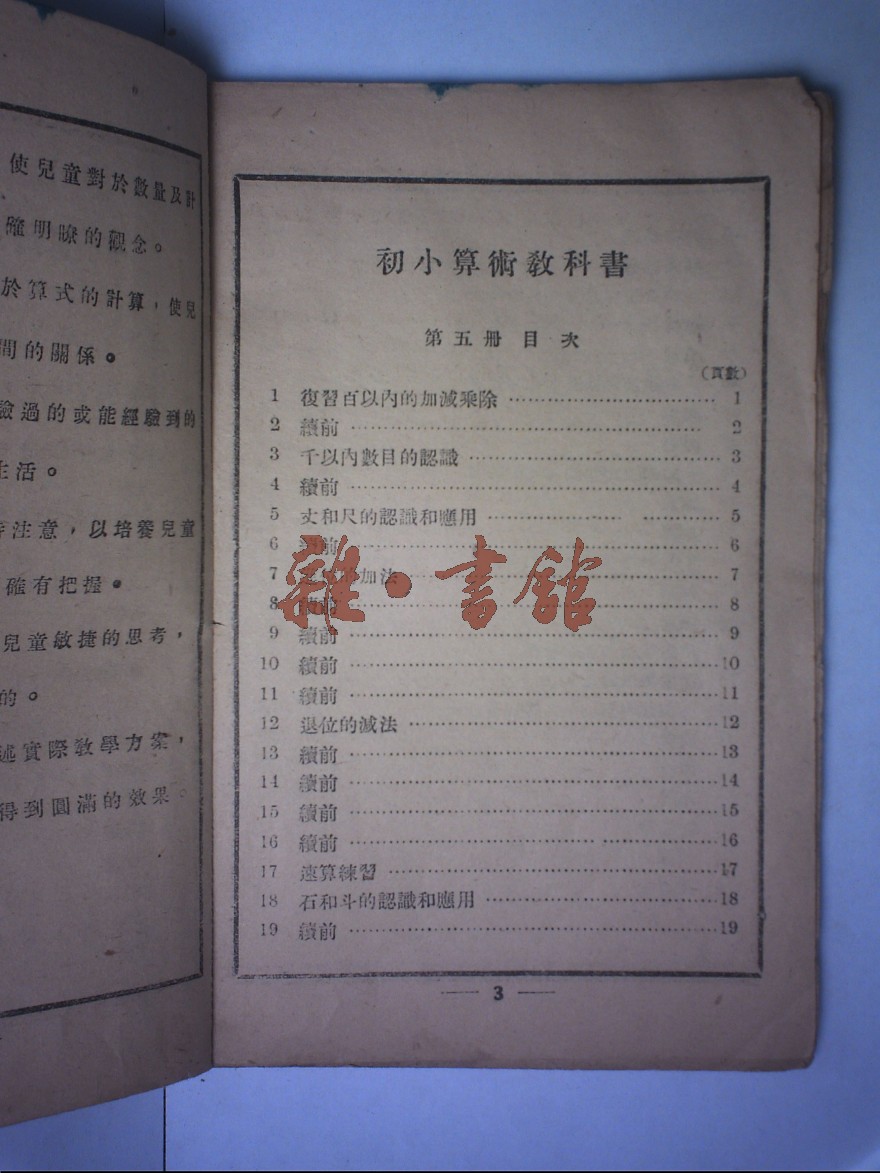 使兒童對於數量及計
確明瞭的觀念。
於算式的計算，使兒
間的關係。
驗過的或能經驗到的
生活。
注意，以培養兒童
確有把握。
兒童敏捷的思考，
的。
述實際教學方案，
得到圓滿的效果。
初小算術教科書
第五冊 目次
（頁數）
1 復習百以內的加減乘除 1
2 續前 2
3 千以內數目的認識 3
4 續前 4
5 丈和尺的認識和應用 5
6 續前 6
7 加法 7
8 續前 8
9 續前 9
10 續前 10
11 續前 11
12 退位的減法 12
13 續前 13
14 續前 14
15 續前 15
16 續前 16
17 速算練習 17
18 石和斗的認識和應用 18
19 續前 19
3
雜·書館